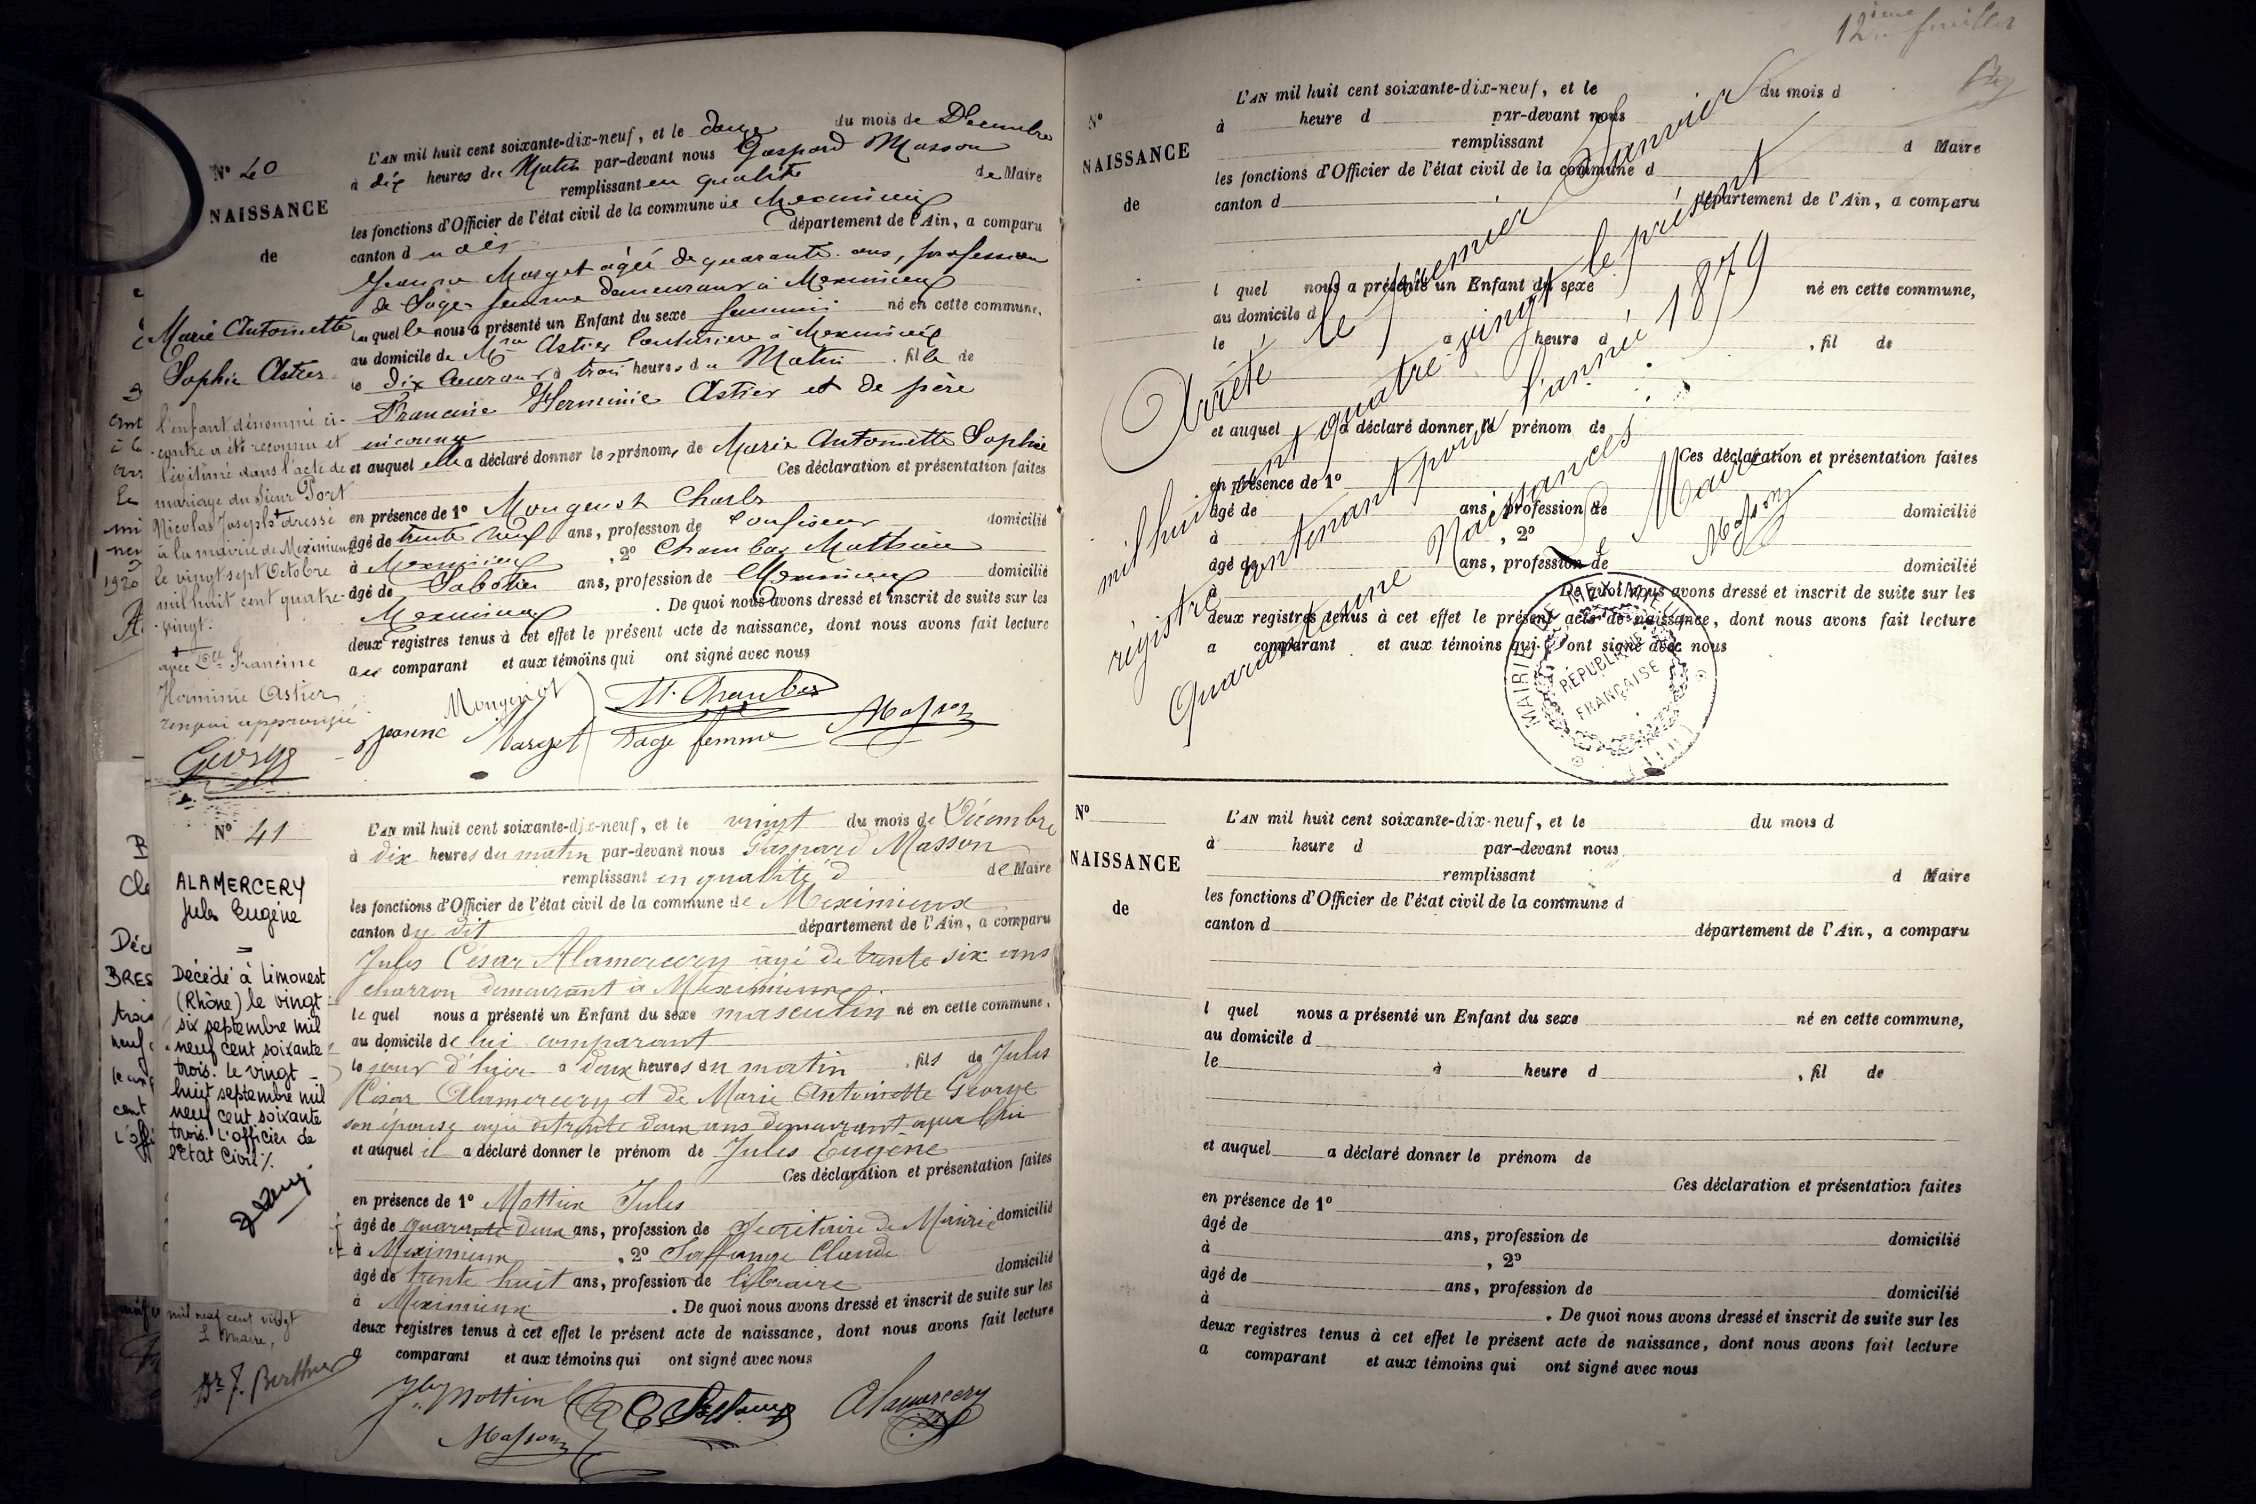 N° 40
NAISSANCE
de
Marie Antoinette
Sophie Astier
l'enfant dénommé ci-
contre a été reconnu et
légitimé dans l'acte de
mariage du Sieur Port
Nicolas Joseph + dressé
à la mairie de Meximieux
le vingt sept Octobre
mil huit cent quatre-
vingt.
+ avec Dlle Francine
Herminie Astier
renvoi approuvé
L'AN mil huit cent soixante-dix-neuf, et le douze du mois de Décembre
à dix heures du Matin par-devant nous Gaspard Masson
remplissant en qualité de Maire
les fonctions d'Officier de l'état civil de la commune de Meximieux
canton d u dit département de l'Ain, a comparu
Jeanne Marget âgée de quarante ans, profession
de Sage femme demeurant à Meximieux
la quelle nous a présenté un Enfant du sexe féminin né en cette commune,
au domicile de Astier Couturière à Meximieux
le dix Courant à trois heures du Matin, fille de
Francine Herminie Astier et de père
inconnu
et auquel elle a déclaré donner les prénoms de Marie Antoinette Sophie
Ces déclaration et présentation faites
en présence de 1° Mougenot Charles
âgé de trente neuf ans, profession de Confiseur domicilié
à Meximieux, 2° Chambas Mathieu
âgé de Sabotier ans, profession de Meximieux domicilié
Meximieux. De quoi nous avons dressé et inscrit de suite sur les
deux registres tenus à cet effet le présent acte de naissance, dont nous avons fait lecture
aux comparant et aux témoins qui ont signé avec nous
Mougenot M. Chambas
Jeanne Marget Sage femme Masson
N° 41
ALAMERCERY
Jules Eugène
=
Décédé à Limonest
(Rhône) le vingt
six septembre mil
neuf cent soixante
trois. Le vingt
huit septembre mil
neuf cent soixante
trois. L'officier de
l'Etat Civil %.
mil neuf cent vingt
L Maire,
Dr J. Berthier
L'AN mil huit cent soixante-dix-neuf, et le vingt du mois de Décembre
à dix heures du matin par-devant nous Gaspard Masson
remplissant en qualité d de Maire
les fonctions d'Officier de l'état civil de la commune de Meximieux
canton du dit département de l'Ain, a comparu
Jules César Alamercery âgé de trente six ans
charron demeurant à Meximieux
le quel nous a présenté un Enfant du sexe masculin né en cette commune,
au domicile de lui comparant
le jour d'hier à deux heures du matin, fils de Jules
César Alamercery et de Marie Antoinette George
son épouse âgée de trente deux ans demeurant avec lui
et auquel il a déclaré donner le prénom de Jules Eugène
Ces déclaration et présentation faites
en présence de 1° Mottin Jules
âgé de quarante deux ans, profession de Secrétaire de Mairie domicilié
à Meximieux, 2° Claude
âgé de trente huit ans, profession de libraire domicilié
à Meximieux. De quoi nous avons dressé et inscrit de suite sur les
deux registres tenus à cet effet le présent acte de naissance, dont nous avons fait lecture
a comparant et aux témoins qui ont signé avec nous
Jles Mottin Alamercery
Masson
12ième feuillet
N°
NAISSANCE
de
L'AN mil huit cent soixante-dix-neuf, et le du mois d
à heure d par-devant nous
remplissant d Maire
les fonctions d'Officier de l'état civil de la commune d
canton d département de l'Ain, a comparu
l quel nous a présenté un Enfant du sexe né en cette commune,
au domicile d
le à heure d, fil de
et auquel a déclaré donner le prénom de
Ces déclaration et présentation faites
en présence de 1°
âgé de ans, profession de domicilié
à, 2°
âgé de ans, profession de domicilié
à. De quoi nous avons dressé et inscrit de suite sur les
deux registres tenus à cet effet le présent acte de naissance, dont nous avons fait lecture
a comparant et aux témoins qui ont signé avec nous
Arrêté le premier Janvier
mil huit cent quatre-vingt le présent
régistre contenant pour l'année 1879
Quarante une Naissances.
Le Maire
Masson
MAIRIE DE MEXIMIEUX
RÉPUBLIQUE
FRANÇAISE
(AIN)
N°
NAISSANCE
de
L'AN mil huit cent soixante-dix-neuf, et le du mois d
à heure d par-devant nous
remplissant d Maire
les fonctions d'Officier de l'état civil de la commune d
canton d département de l'Ain, a comparu
l quel nous a présenté un Enfant du sexe né en cette commune,
au domicile d
le à heure d, fil de
et auquel a déclaré donner le prénom de
Ces déclaration et présentation faites
en présence de 1°
âgé de ans, profession de domicilié
à, 2°
âgé de ans, profession de domicilié
à. De quoi nous avons dressé et inscrit de suite sur les
deux registres tenus à cet effet le présent acte de naissance, dont nous avons fait lecture
a comparant et aux témoins qui ont signé avec nous